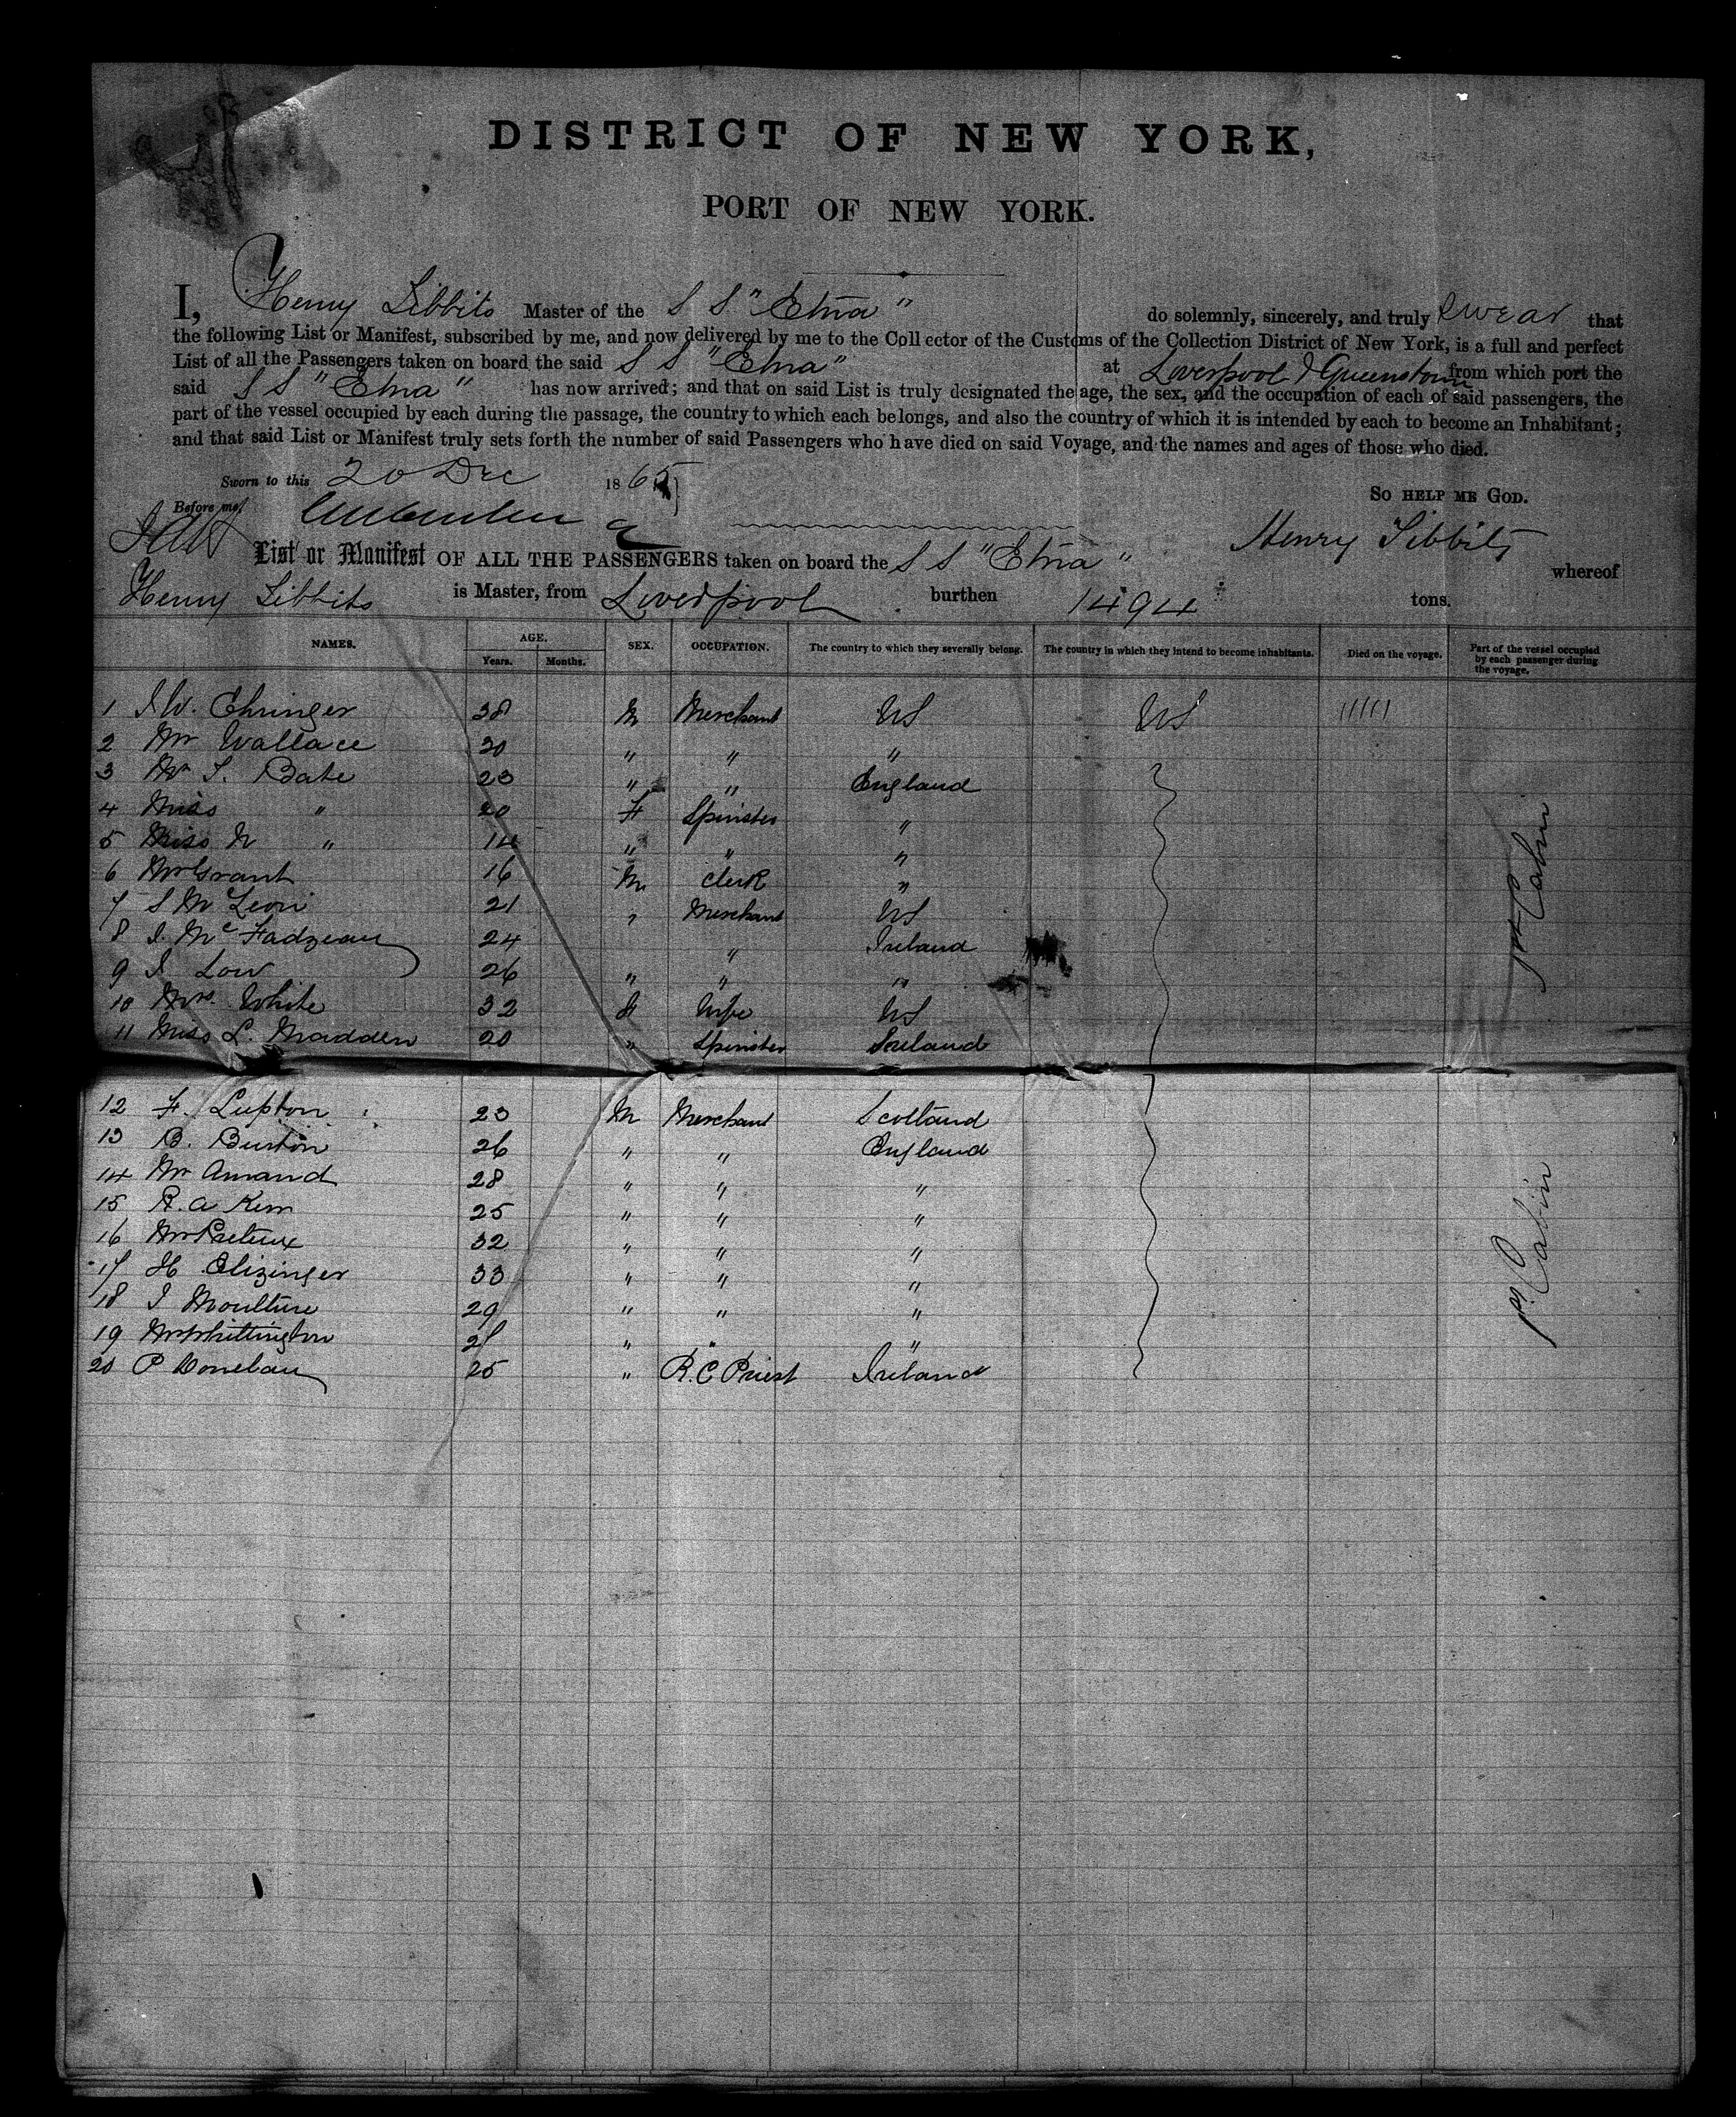 DISTRICT OF NEW YORK,
PORT OF NEW YORK.
I, Henry Tibbits Master of the S S "Etna" do solemnly, sincerely, and truly swear that
the following List or Manifest, subscribed by me, and now delivered by me to the Collector of the Customs of the Collection District of New York, is a full and perfect
List of all the Passengers taken on board the said S S "Etna" at Liverpool & Queenstown from which port the
said S S "Etna" has now arrived; and that on said List is truly designated the age, the sex, and the occupation of each of said passengers, the
part of the vessel occupied by each during the passage, the country to which each belongs, and also the country of which it is intended by each to become an Inhabitant;
and that said List or Manifest truly sets forth the number of said Passengers who have died on said Voyage, and the names and ages of those who died.
Sworn to this 20 Dec 1865
So HELP ME GOD.
Before me,
Henry Tibbits
List or Manifest OF ALL THE PASSENGERS taken on board the S S "Etna" whereof
Henry Tibbits is Master, from Liverpool burthen 1494 tons.
NAMES. AGE. Years. Months. SEX. OCCUPATION. The country to which they severally belong. The country in which they intend to become inhabitants. Died on the voyage. Part of the vessel occupied by each passenger during the voyage.
1 J W. Ehringer 38 M Merchant US US
2 Mr Wallace 30 " " "
3 Mr S. Bate 23 " " England
4 Miss " 20 F Spinster "
5 Miss N " 14 " " "
6 Mr Grant 16 M Clerk "
7 S M Levi 21 " Merchant US
8 J. McFadzean 24 " Ireland
9 J Low 26 " " "
10 Mrs. White 32 F Wife US
11 Miss L. Madden 20 " Spinster Ireland
1st Cabin
12 F. Lupton 23 M Merchant Scotland
13 B. Burton 26 " " England
14 Mr Amand 28 " " "
15 R. A Kerr 25 " " "
16 Mr 32 " " "
17 H Elizinger 33 " " "
18 J Moulture 29 " " "
19 Mr Whittington 21 " " "
20 P Donelan 25 " R. C Priest Ireland
1st Cabin